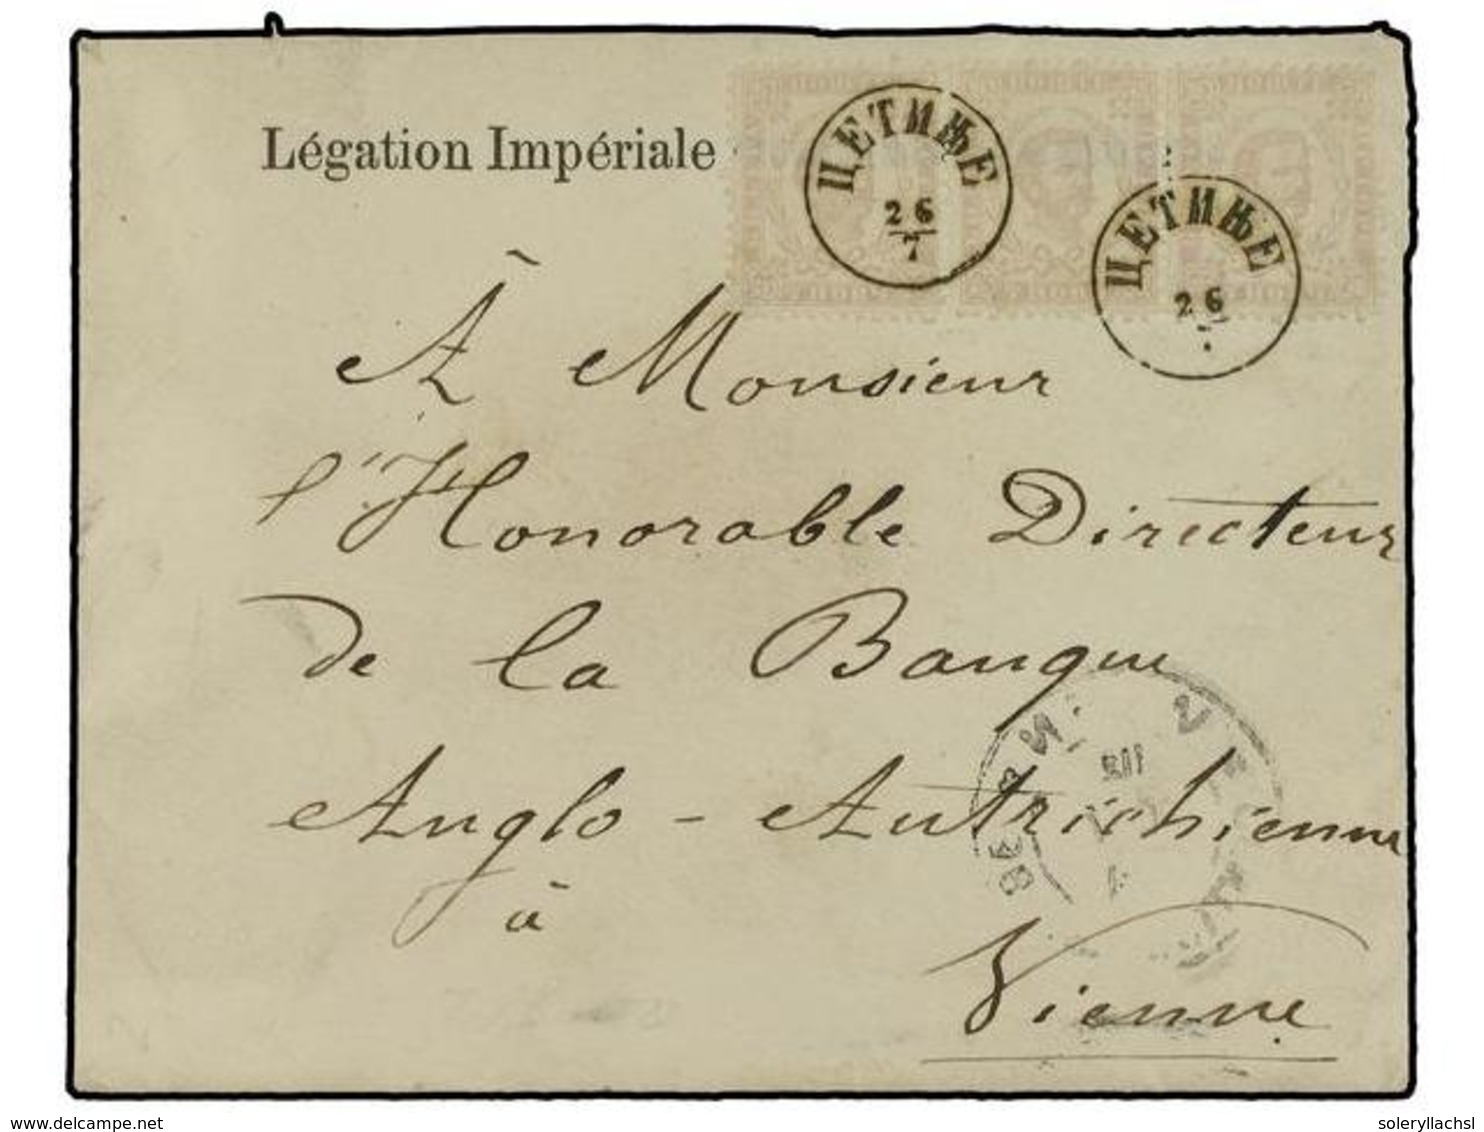 Légation Impériale
ЦЕТИЊЕ
26
7
ЦЕТИЊЕ
26
À Monsieur
l'Honorable Directeur
de la Banque
Anglo - Autrichienne
à
Vienne
www.delcampe.net
soleryllachsl